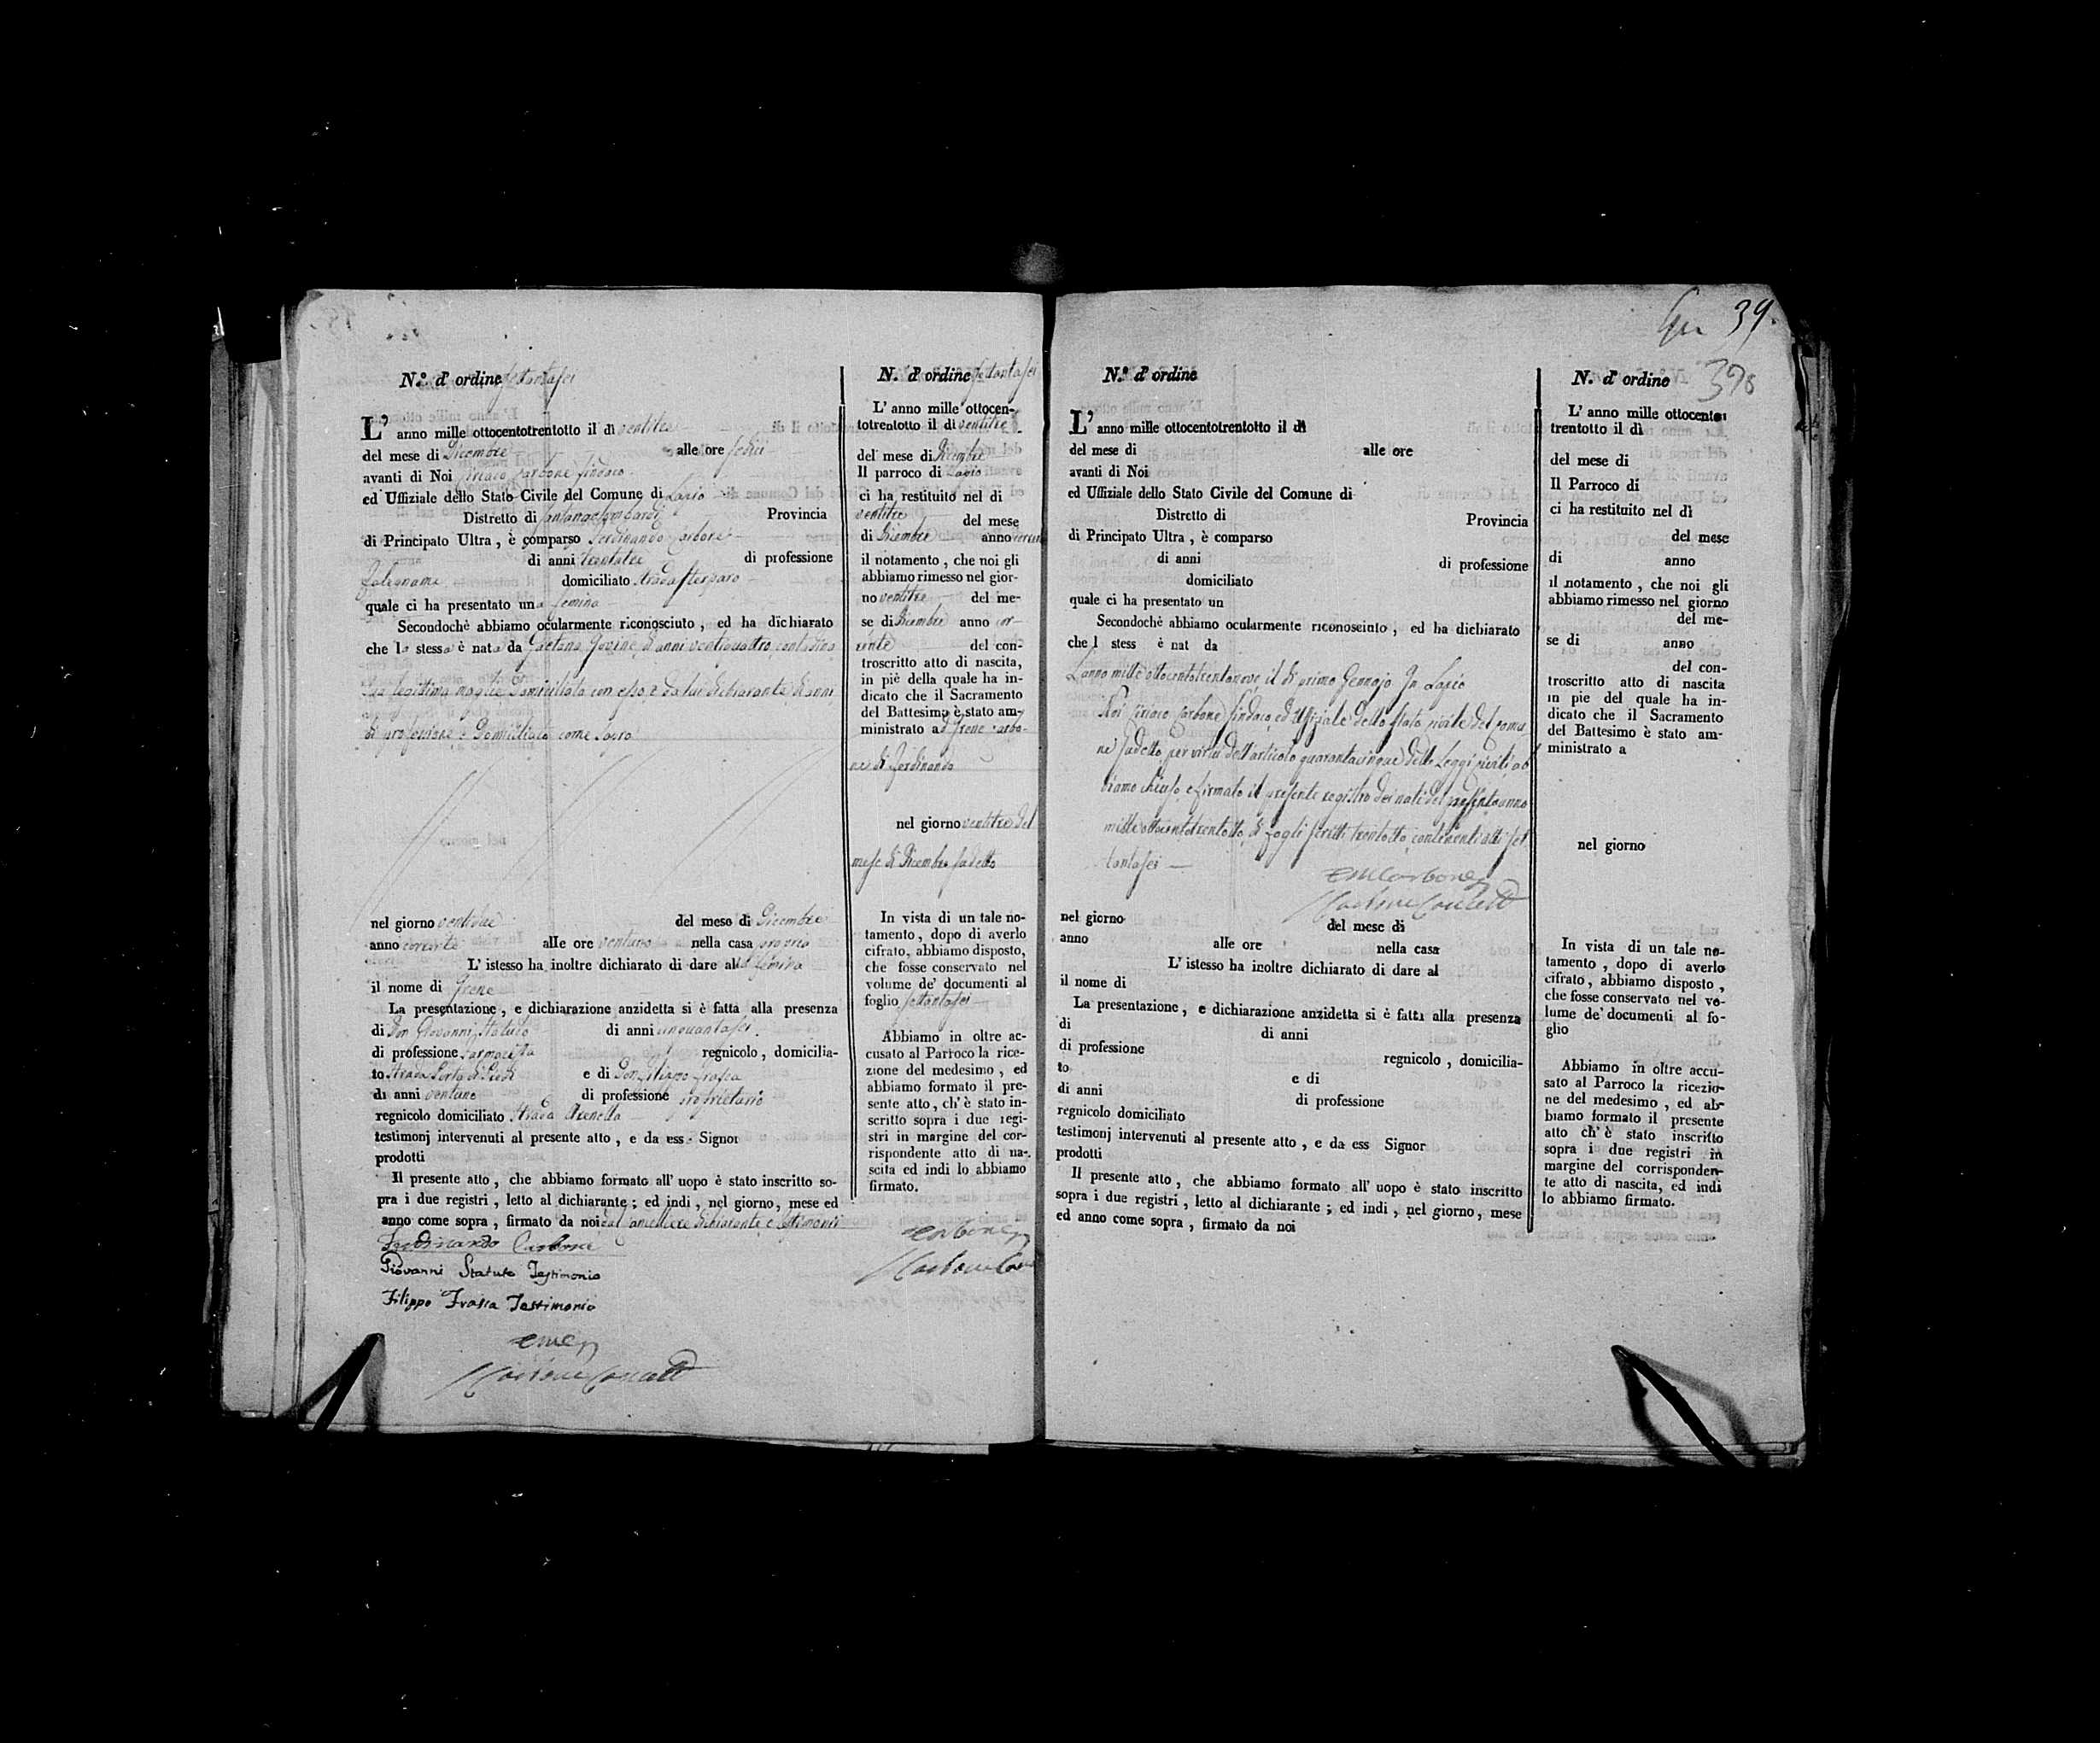 N.º d' ordine settantasei
L' anno mille ottocentotrentotto il dì ventitre
del mese di Dicembre alle ore sedici
avanti di Noi Ciriaco Carbone Sindaco
ed Uffiziale dello Stato Civile del Comune di Lapio
Distretto di Santangelo Lombardi Provincia
di Principato Ultra, è comparso Ferdinando Carbone
di anni trentatre di professione
Falegname domiciliato Strada
quale ci ha presentato una femina
Secondochè abbiamo ocularmente riconosciuto, ed ha dichiarato
che la stessa è nata da Gaetana Jovine di anni ventiquattro contadina
sua legittima moglie domiciliata con esso, e da lui dichiarante di anni
di professione e domiciliato come sopra
nel giorno ventitre del mese di Dicembre
anno corrente alle ore nella casa propria
L' istesso ha inoltre dichiarato di dare alla femina
il nome di Irene
La presentazione, e dichiarazione anzidetta si è fatta alla presenza
di Don Giovanni Statuto di anni cinquantasei
di professione Farmacista regnicolo, domicilia-
to Strada Porta di Piedi e di Don Filippo Frasca
di anni ventuno di professione proprietario
regnicolo domiciliato Strada Arenella
testimonj intervenuti al presente atto, e da ess Signor
prodotti
Il presente atto, che abbiamo formato all' uopo è stato inscritto so-
pra i due registri, letto al dichiarante; ed indi, nel giorno, mese ed
anno come sopra, firmato da noi dal Cancelliere dichiarante e testimonii
Ferdinando Carbone
Giovanni Statuto Testimonio
Filippo Frasca Testimonio
N. d' ordine settantasei
L' anno mille ottocen-
totrentotto il dì ventitre
del mese di Dicembre
Il parroco di Lapio
ci ha restituito nel di
ventitre del mese
di Dicembre anno corrente
il notamento, che noi gli
abbiamo rimesso nel gior-
no ventitre del me-
se di Dicembre anno cor-
rente del con-
troscritto atto di nascita,
in piè della quale ha in-
dicato che il Sacramento
del Battesimo è stato am-
ministrato ad Irene Carbo-
ne di Ferdinando
nel giorno ventitre del
mese di Dicembre sudetto
In vista di un tale no-
tamento, dopo di averlo
cifrato, abbiamo disposto,
che fosse conservato nel
volume de' documenti al
foglio settantasei
Abbiamo in oltre ac-
cusato al Parroco la rice-
zione del medesimo, ed
abbiamo formato il pre-
sente atto, ch' è stato in-
scritto sopra i due regi-
stri in margine del cor-
rispondente atto di na-
scita ed indi lo abbiamo
firmato.
Carbone
39.
398
N.º d' ordine
L' anno mille ottocentotrentotto il dì
del mese di alle ore
avanti di Noi
ed Uffiziale dello Stato Civile del Comune di
Distretto di Provincia
di Principato Ultra, è comparso
di anni di professione
domiciliato
quale ci ha presentato un
Secondochè abbiamo ocularmente riconosciuto, ed ha dichiarato
che l stess è nat da
L'anno mille ottocentotrentanove il dì primo Gennajo In Lapio
Noi Ciriaco Carbone Sindaco ed Uffiziale dello stato civile del comu
ne sudetto, per virtù dell'articolo quarantacinque delle Leggi civili, ab
biamo chiuso, e firmato il presente registro dei nati del presente anno
mille ottocentotrentotto, di fogli scritti trentotto, contenenti atti set
tantasei
Carbone
nel giorno del mese di
anno alle ore nella casa
L' istesso ha inoltre dichiarato di dare al
il nome di
La presentazione, e dichiarazione anzidetta si è fatta alla presenza
di di anni
di professione regnicolo, domicilia-
to e di
di anni di professione
regnicolo domiciliato
testimonj intervenuti al presente atto, e da ess Signor
prodotti
Il presente atto, che abbiamo formato all' uopo è stato inscritto
sopra i due registri, letto al dichiarante; ed indi, nel giorno, mese
ed anno come sopra, firmato da noi
N. d' ordine
L' anno mille ottocento
trentotto il dì
del mese di
Il Parroco di
ci ha restituito nel dì
del mese
di anno
il notamento, che noi gli
abbiamo rimesso nel giorno
del me-
se di anno
del con-
troscritto atto di nascita
in pie del quale ha in-
dicato che il Sacramento
del Battesimo è stato am-
ministrato a
nel giorno
In vista di un tale no-
tamento, dopo di averlo
cifrato, abbiamo disposto,
che fosse conservato nel vo-
lume de' documenti al fo-
glio
Abbiamo in oltre accu-
sato al Parroco la ricezio-
ne del medesimo, ed ab-
biamo formato il presente
atto ch' è stato inscritto
sopra i due registri in
margine del corrisponden-
te atto di nascita, ed indi
lo abbiamo firmato.